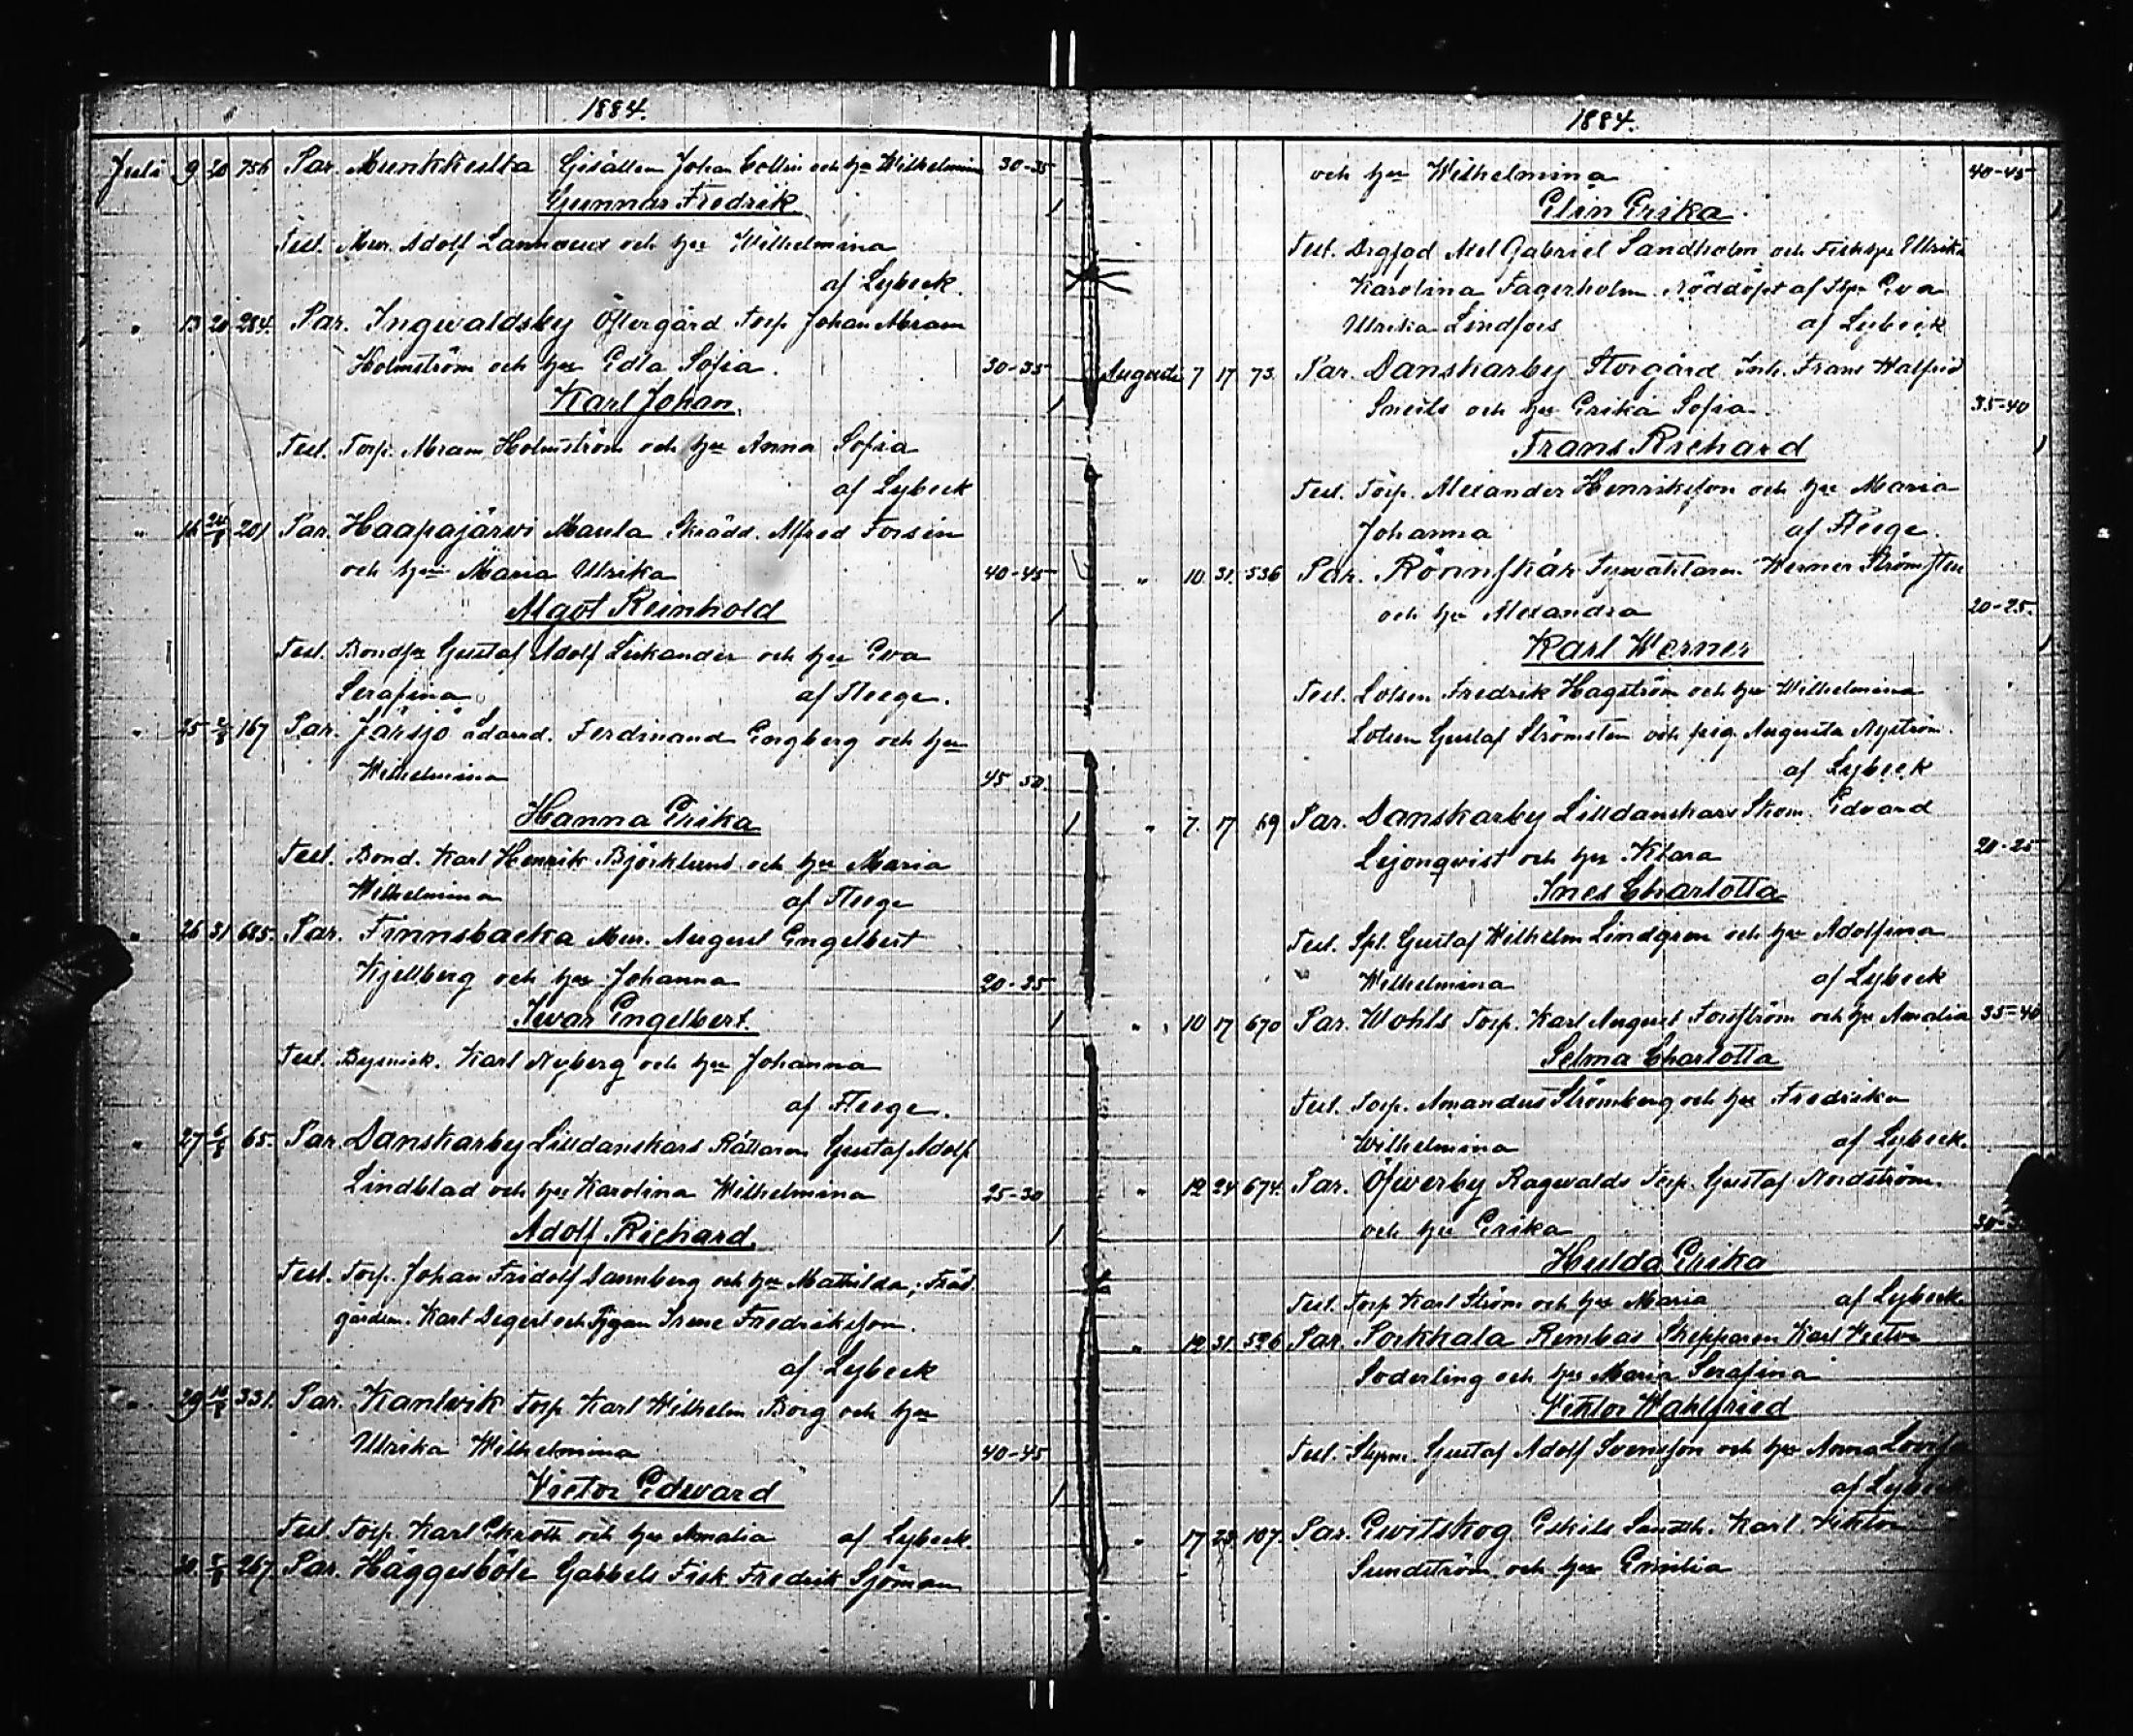 1884.
Juli 9 20 756 Par. Munkkulla Gesällen Johan Collin och hu Wilhelmina 30-35
Gunnar Fredrik 1
Test. Mur. Adolf och hu Wilhelmina
af Lybeck.
" 13 20 284. Par. Ingwaldsby Öfvergård Torp. Johan Abram
Holmström och hu Edla Sofia. 30-35
Karl Johan. 1
Test. Torp. Abram Holmström och hu Anna Sofia
af Lybeck
" 16 24/8 201 Par. Haapajärwi Maula Skrädd. Alfred Forsén
och hu Maria Ulrika 40-45
Algot Reinhold 1
Test. Bonds. Gustaf Adolf Lukander och hu Eva
Serafina af Fleege.
" 25 2/8 167 Par. Järsjö Ferdinand Engberg och hu
Wilhelmina 45-50
Hanna Erika 1
Test. Bond. Karl Henrik Björklund och hu Maria
Wilhelmina af Fleege
" 26 31 685. Par. Finnsbacka Mur. August Engelbert
Kjellberg och hu Johanna
Iwar Engelbert. 1
Test. Bysmed. Karl Nyberg och hu Johanna
af Fleege.
" 27 6/8 65. Par. Danskarby Lilldanskars Rättaren Gustaf Adolf
Lindblad och hu Karolina Wilhelmina 25-30
Adolf Richard. 1
Test. Torp. Johan Fridolf Dannberg och hu Mathilda; Träd-
gårdsm. Karl Degert och Irene Fredriksson.
af Lybeck
" 29 10/8 331. Par. Kantwik Torp. Karl Wilhelm Borg och hu
Ulrika Wilhelmina 40-45
Victor Edward 1
Test. Torp. Karl Ekroth och hu Amalia af Lybeck.
30 267 Par. Häggesböle Gabbels Fisk. Fredrik Sjöman
1884.
och hu Wilhelmina 40-45
Elin Erika
Test. Axel Gabriel Sandholm och Ulrika
Karolina Fagerholm. Nöddöpt af Eva
Ulrika Lindfors af Lybeck
Augusti 7 17 73. Par. Danskarby Storgård Inh. Frans Walfrid
Sneils och hu Erika Sofia. 35-40
Frans Richard 1
Test. Torp. Alexander Henriksson och hu Maria
Johanna af Fleege.
" 10 31. 536 Par. Rönnskär Fyrväktaren Werner Strömsten
och hu Alexandra 20-25.
Karl Werner 1
Test. Lotsen Fredrik Hagström och hu Wilhelmina
Lotsen Gustaf Strömsten och pig. Augusta Nyström.
af Lybeck
" 7. 17 69 Par. Danskarby Lilldanskars Skom. Edvard
Lejonqvist och hu Klara 20-25
Ines Charlotta
Test. Spl. Gustaf Wilhelm Lindgren och hu Adolfina
Wilhelmina af Lybeck
" 10 17 670 Par. Wohls Torp. Karl August Forsström och hu Amalia 35-40
Selma Charlotta
Test. Torp. Amandus Strömberg och hu Fredrika
Wilhelmina af Lybeck.
" 12 24 674. Par. Öfwerby Ragwalds Torp. Gustaf Nordström.
och hu Erika
Hulda Erika
Test. Torp. Karl Ström och hu Maria af Lybeck.
" 12 31. 526 Par. Porkkala Rembas Skepparen Karl Victor
Söderling och hu Maria Serafina
Viktor Wahlfried
Test. Styrm. Gustaf Adolf Svensson och hu Anna Lovisa
af Lybeck
" 17 107. Par. Evitskog Eskils Karl Viktor
Sundström och hu Emilia